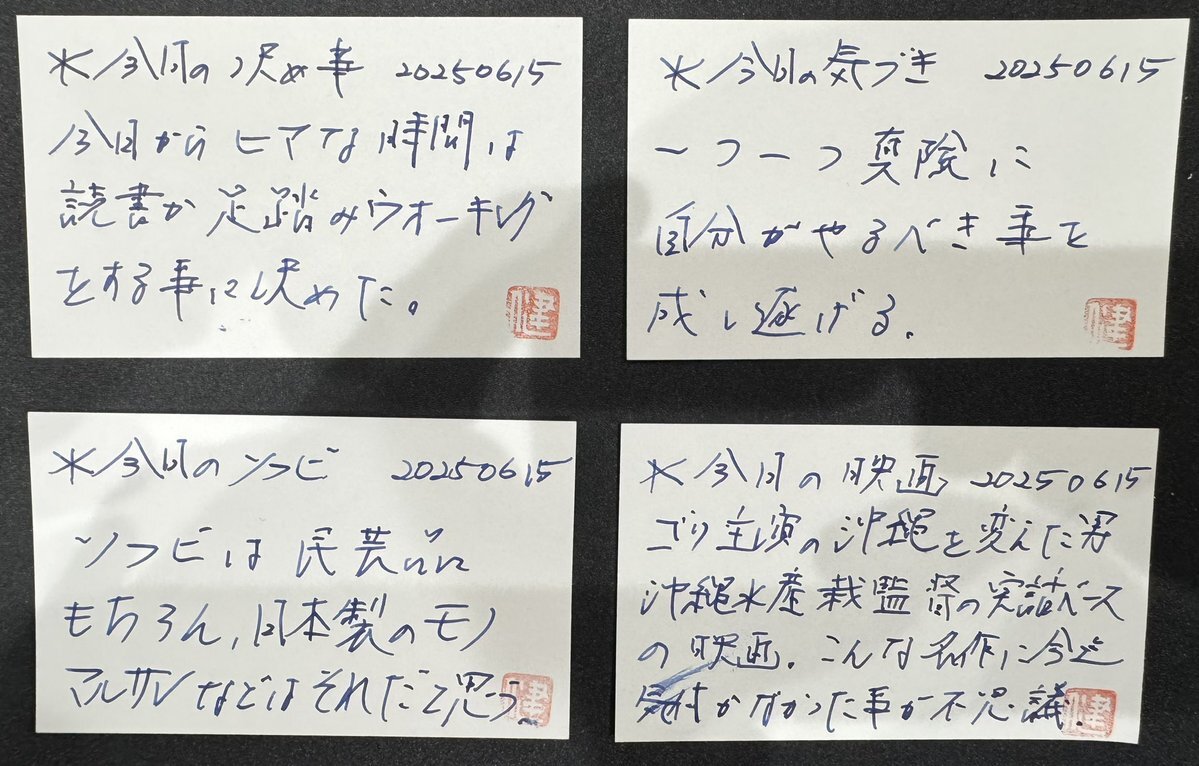 *今日の決め事 20250615
今日からヒマな時間は
読書か足踏みウオーキング
をする事に決めた。
健
*今日の気づき 20250615
一つ一つ真険に
自分がやるべき事を
成し遂げる.
健
*今日のソフビ 20250615
ソフビは民芸品
もちろん,日本製のモノ
マルサンなどはそれだと思う。
健
*今日の映画 20250615
ゴリ主演の沖縄を変えた男
沖縄水産栽監督の実話ベース
の映画.こんな名作に今迄
気付かなかった事が不思議.
健